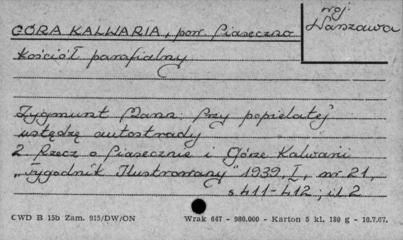 woj.
Warszawa
GÓRA KALWARIA, pow. Piaseczno
Kościół parafialny
Zygmunt Mann: Przy popielatej
wstędze autostrady
2 Rzecz o Piasecznie i Górze Kalwarii
"Tygodnik Ilustrowany" 1939, I, nr 21,
s 411-412; il. 2
CWD B 15b Zam. 915/DW/ON Wrak 647 - 980.000 - Karton 5 kl. 180 g - 10.7.67.